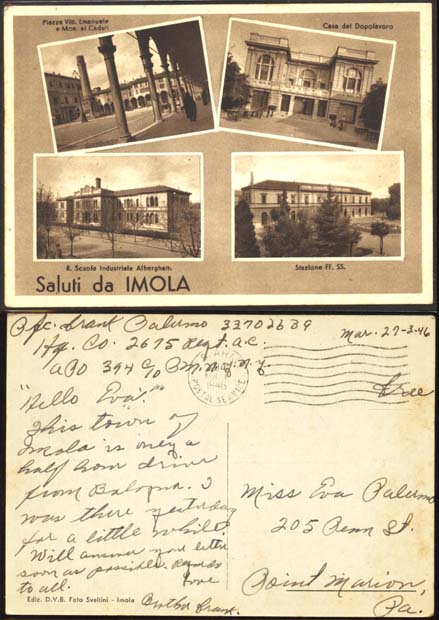 Piazza Vitt. Emanuele
e Mon. ai Caduti
Casa del Dopolavoro
R. Scuola Industriale Alberghetti
Stazione FF. SS.
Saluti da IMOLA
Pfc. Frank Palermo 33702639
Hq. Co. 2675 Regt. A.C.
APO 394 c/o P.M. N.Y. N.Y.
Mar. 27-3-46
POSTAL SERVICE
Free
"Hello Eva."
This town of
Imola is only a
half hour drive
from Bologna. I
was there yesterday
for a little while.
Will answer your letter
soon as possible. Regards
to all. Love
Brother Frank.
Miss Eva Palermo
205 Penn St.
Point Marion,
Pa.
Ediz. D.V.B. Foto Sveltini - Imola